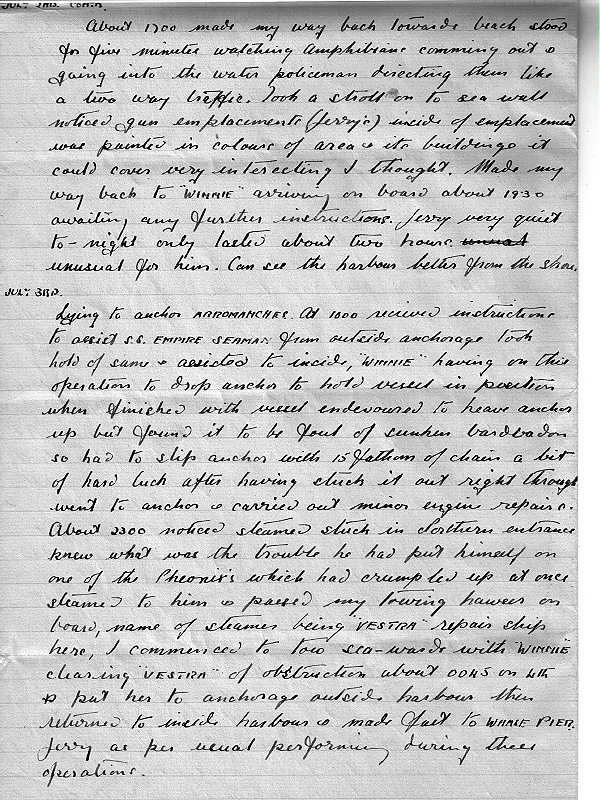 About 1700 made my way back towards beach stood
for five minutes watching Amphibians comming out &
going into the water policeman directing them like
a two way traffic. Took a stroll on to sea wall
noticed gun emplacements (Jerry's) inside of emplacement
was painted in colours of area & its buildings it
could cover very interesting I thought. Made my
way back to "WINNIE" arriving on board about 1930
awaiting any further instructions. Jerry very quiet
to-night only lasted about two hours unusual
unusual for him. Can see the harbour better from the shore
JULY 3RD.
Lying to anchor ARROMANCHES. At 1000 recieved instructions
to assist S.S. EMPIRE SEAMAN from outside anchorage took
hold of same & assisted to inside, "WINNIE" having on this
operation to drop anchor to hold vessel in position
when finished with vessel endevoured to heave anchor
up but found it to be foul of sunken
so had to slip anchor with 15 fathom of chain a bit
of hard luck after having stuck it out right through
went to anchor & carried out minor engine repairs.
About 2300 noticed steamer stuck in Northern entrance
knew what was the trouble he had put himself on
one of the Pheonix's which had crumpled up at once
steamed to him & passed my towing hawser on
board, name of steamer being "VESTRA" repair ship
here, I commenced to tow sea-wards with "WINNIE"
clearing "VESTRA" of obstruction about 0045 on 4th
& put her to anchorage outside harbour then
returned to inside harbour & made fast to WHALE PIER.
Jerry as per usual performing during these
operations.